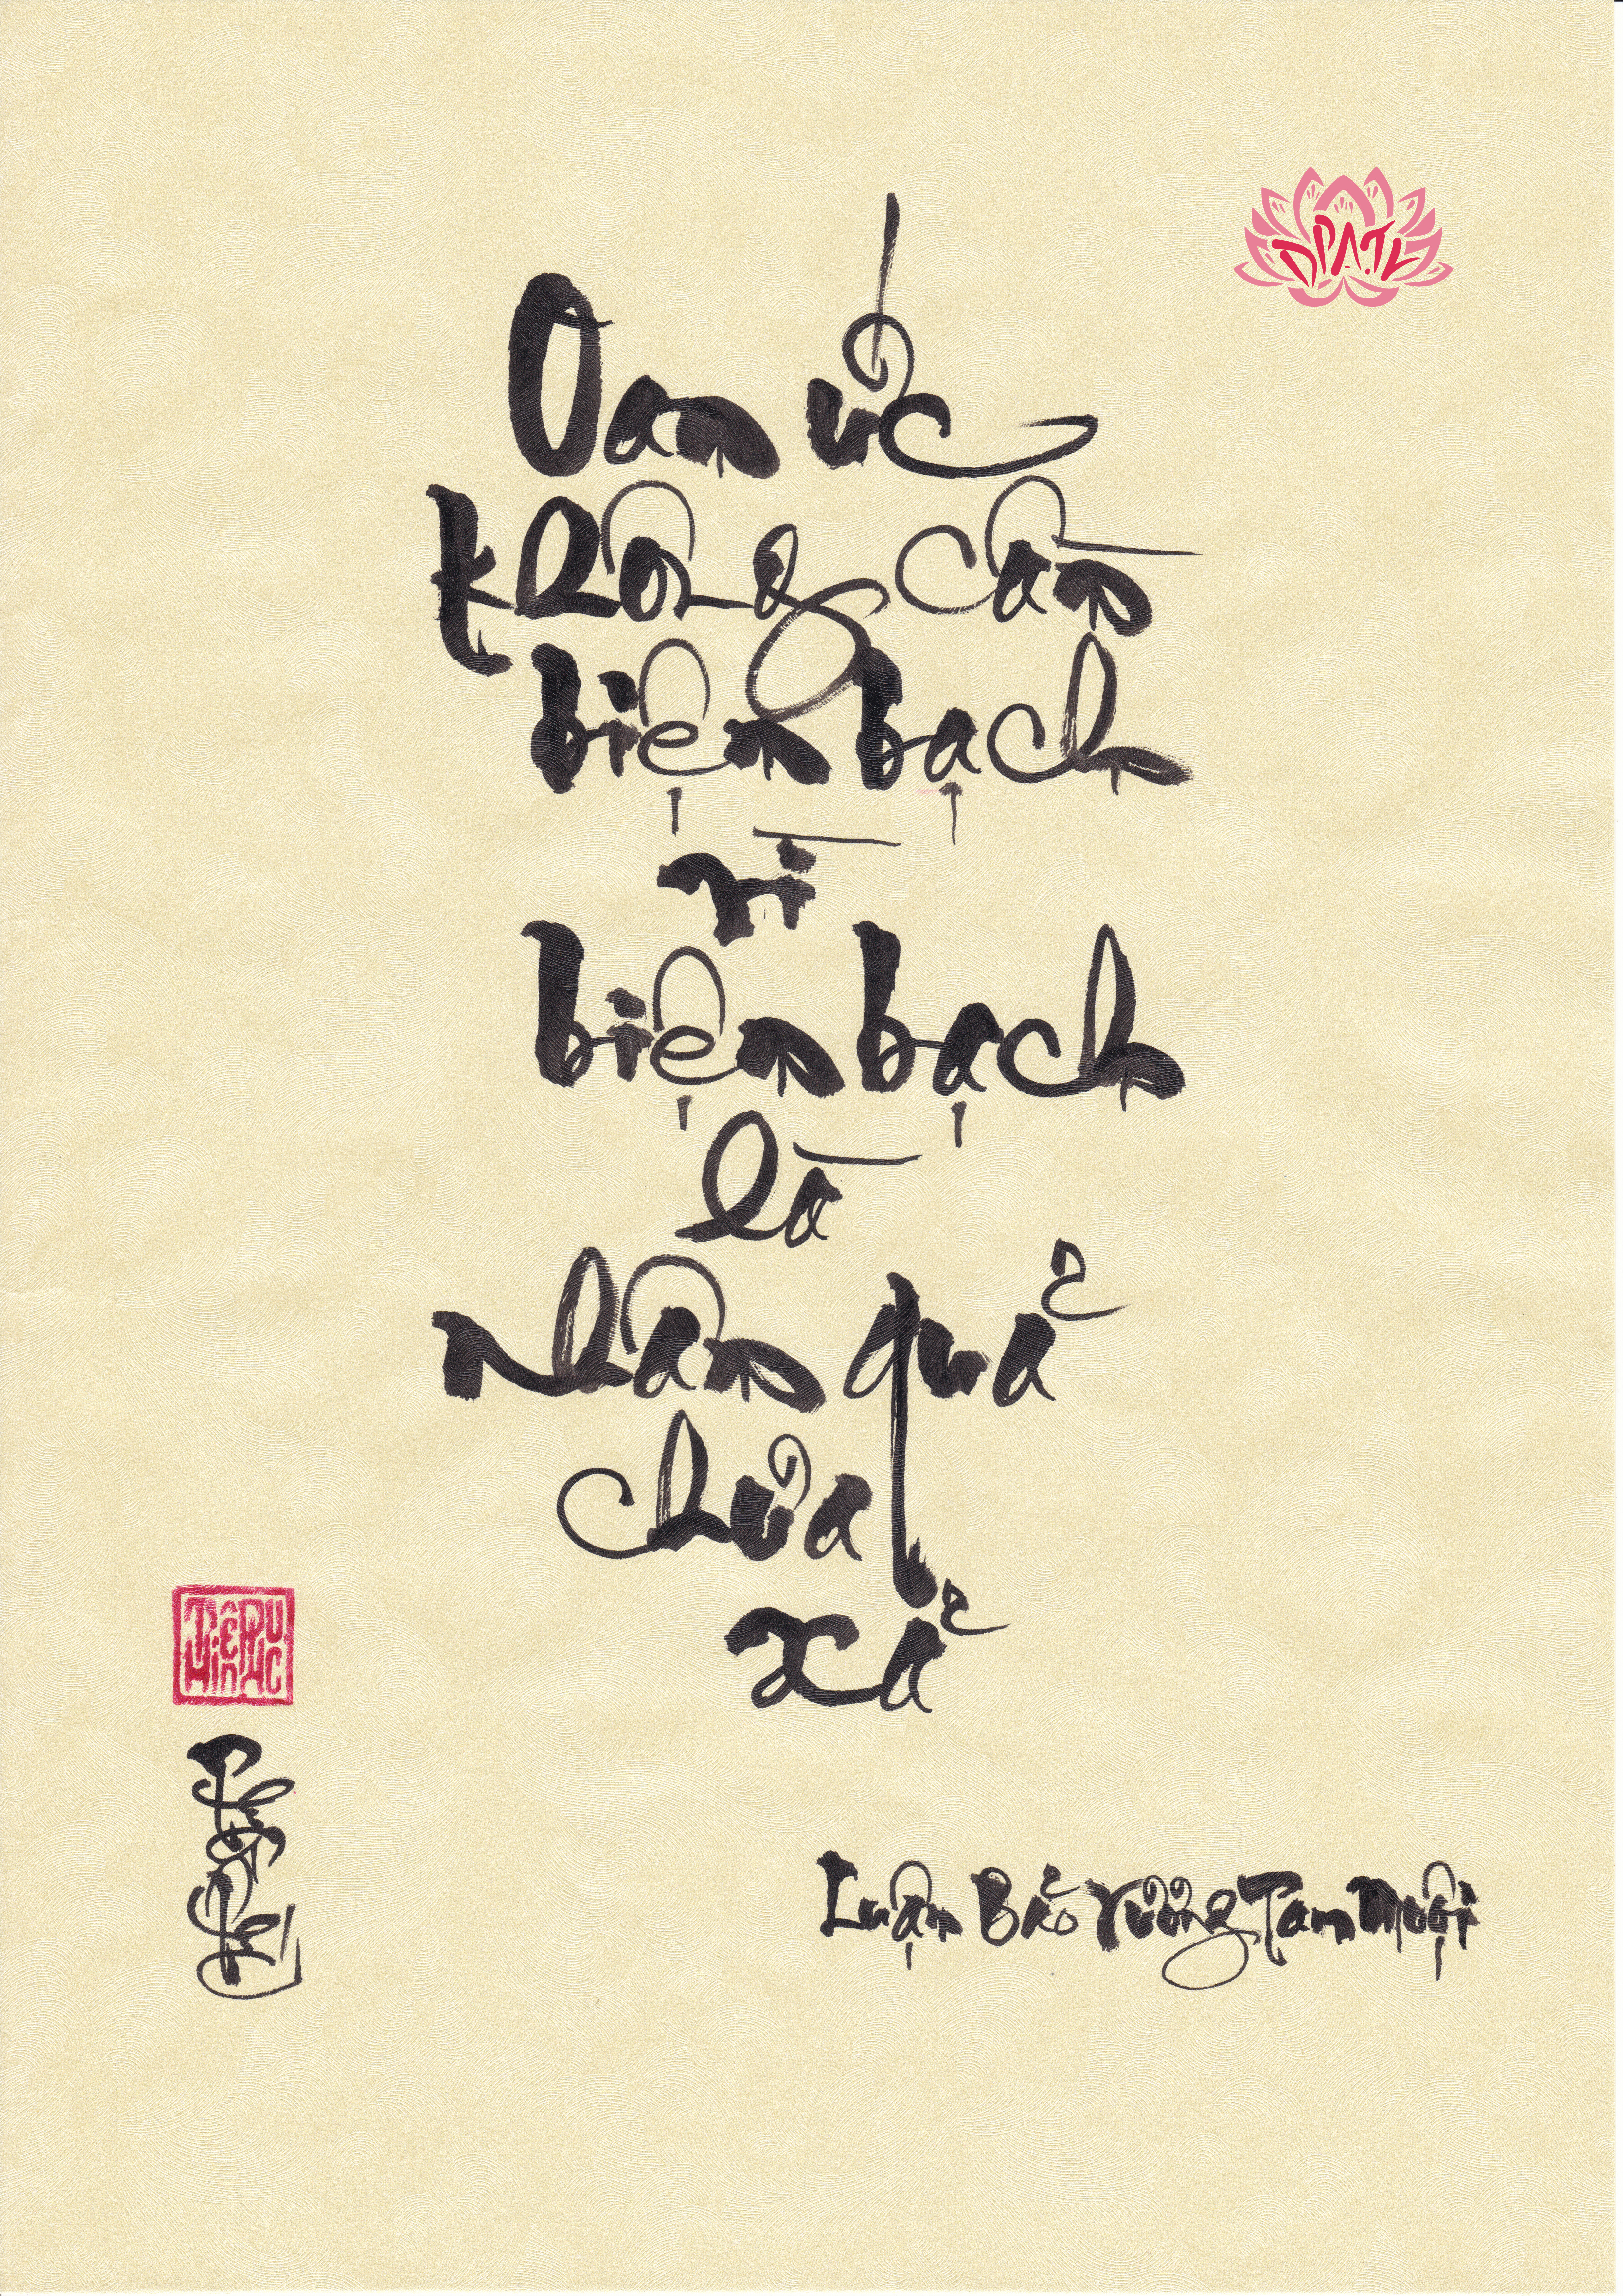 DPATL
Oan ức
không cần
biện bạch
vì
biện bạch
là
nhân quả
chưa
xả
Luận Bảo Vương Tam Muội